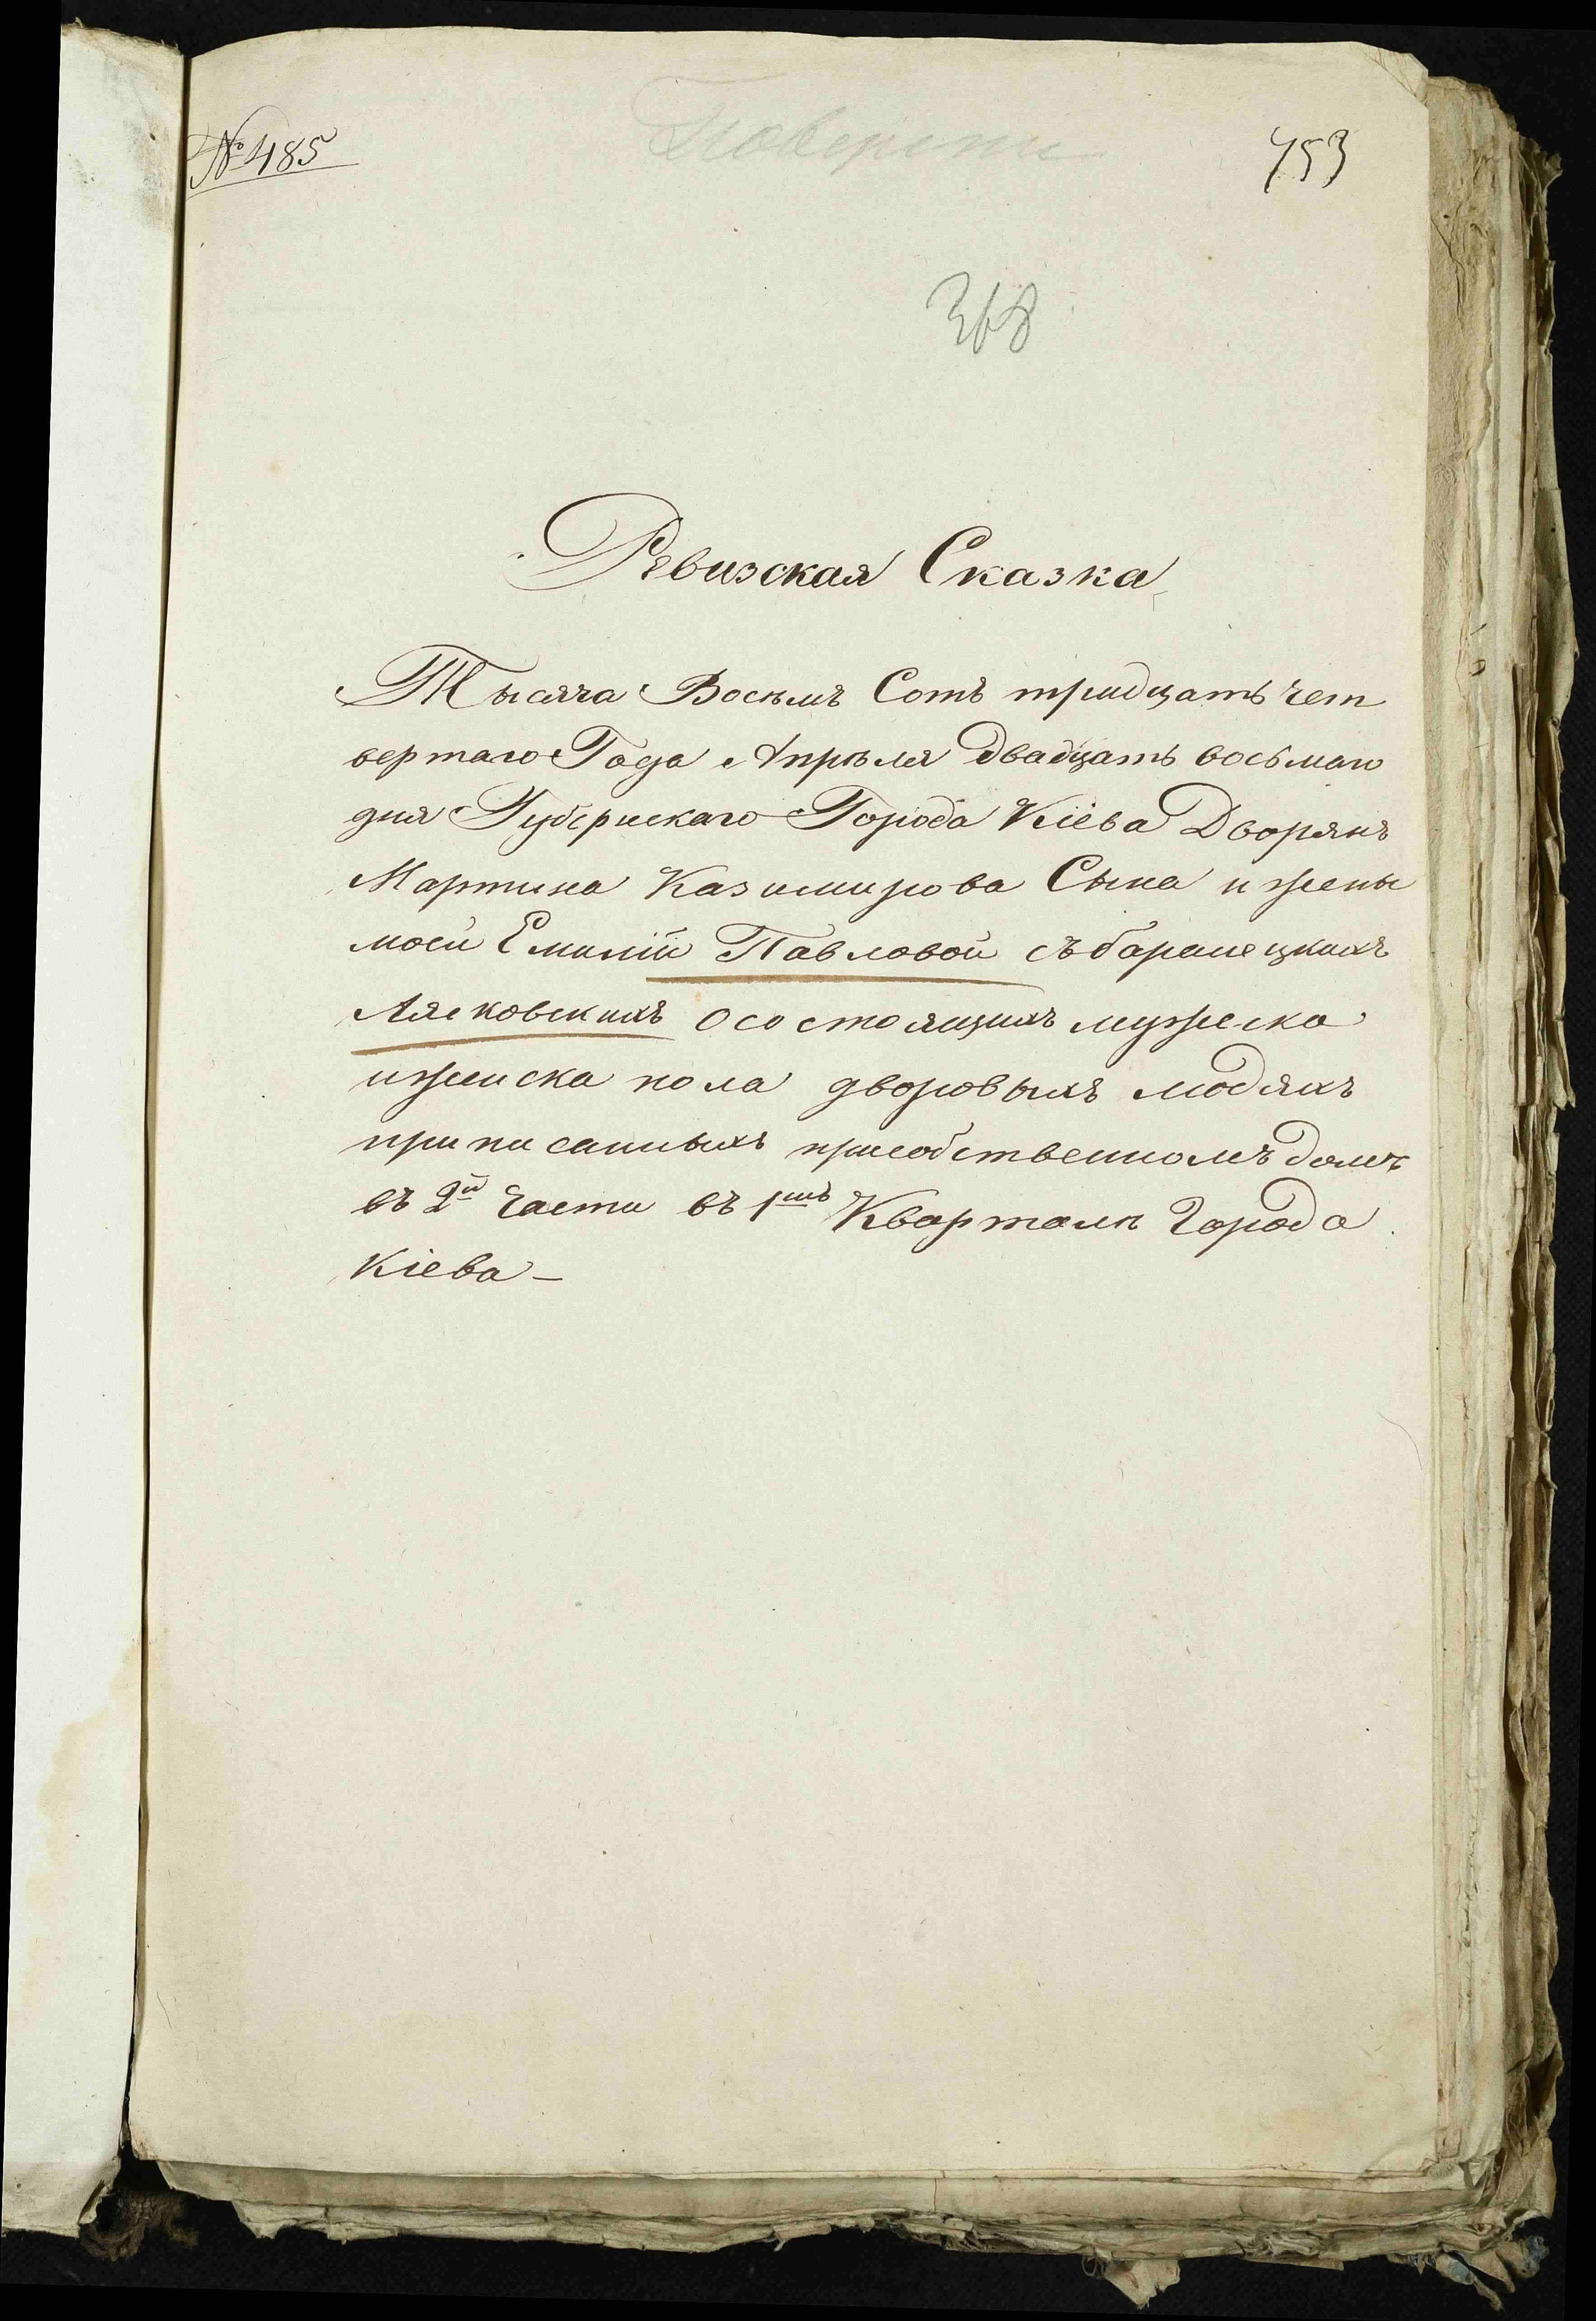 № 485
753
368
Ревизская Сказка
Тысяча Восемъ Сотъ тридцать чет
вертаго Года Апрѣля двадцать восьмаго
дня Губернскаго Города Кіева Дворянъ
Мартина Казимирова Сына и жены
моей Емиліи Павловой съ баранецкихъ
Лясковскихъ о состоящихъ мужеска
и женска пола дворовыхъ людяхъ
приписанныхъ при собственномъ домѣ
въ 2й Части въ 1мъ Кварталѣ Города
Кіева –